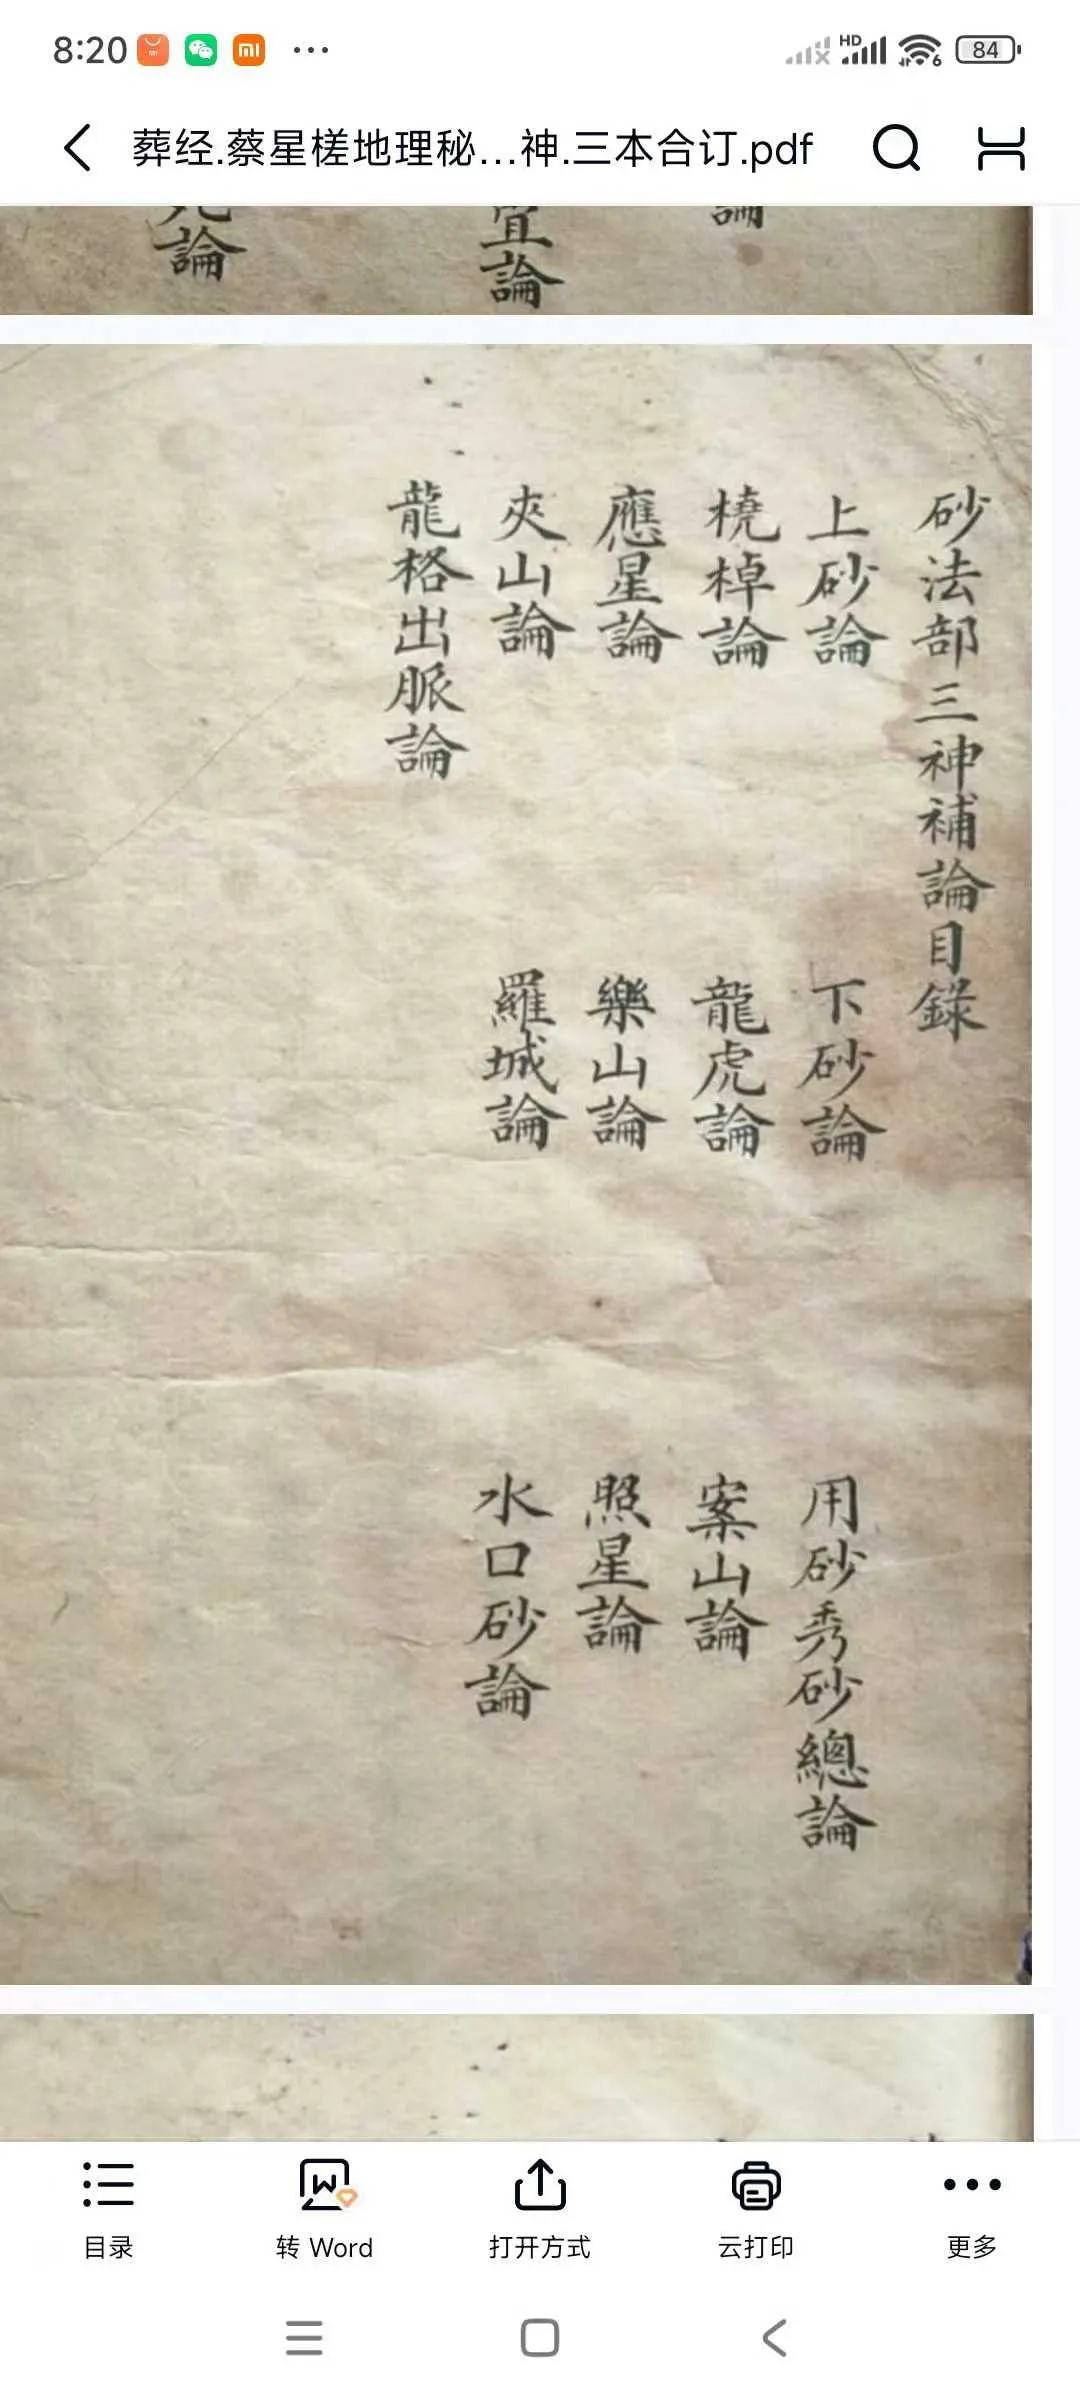 8:20
HD
6
84
葬经.蔡星槎地理秘...神.三本合订.pdf
論
宜論
論
砂法部三神補論目錄
上砂論
下砂論
用砂秀砂總論
橈棹論
龍虎論
案山論
應星論
樂山論
照星論
夾山論
羅城論
水口砂論
龍格出脈論
目录
转 Word
打开方式
云打印
更多